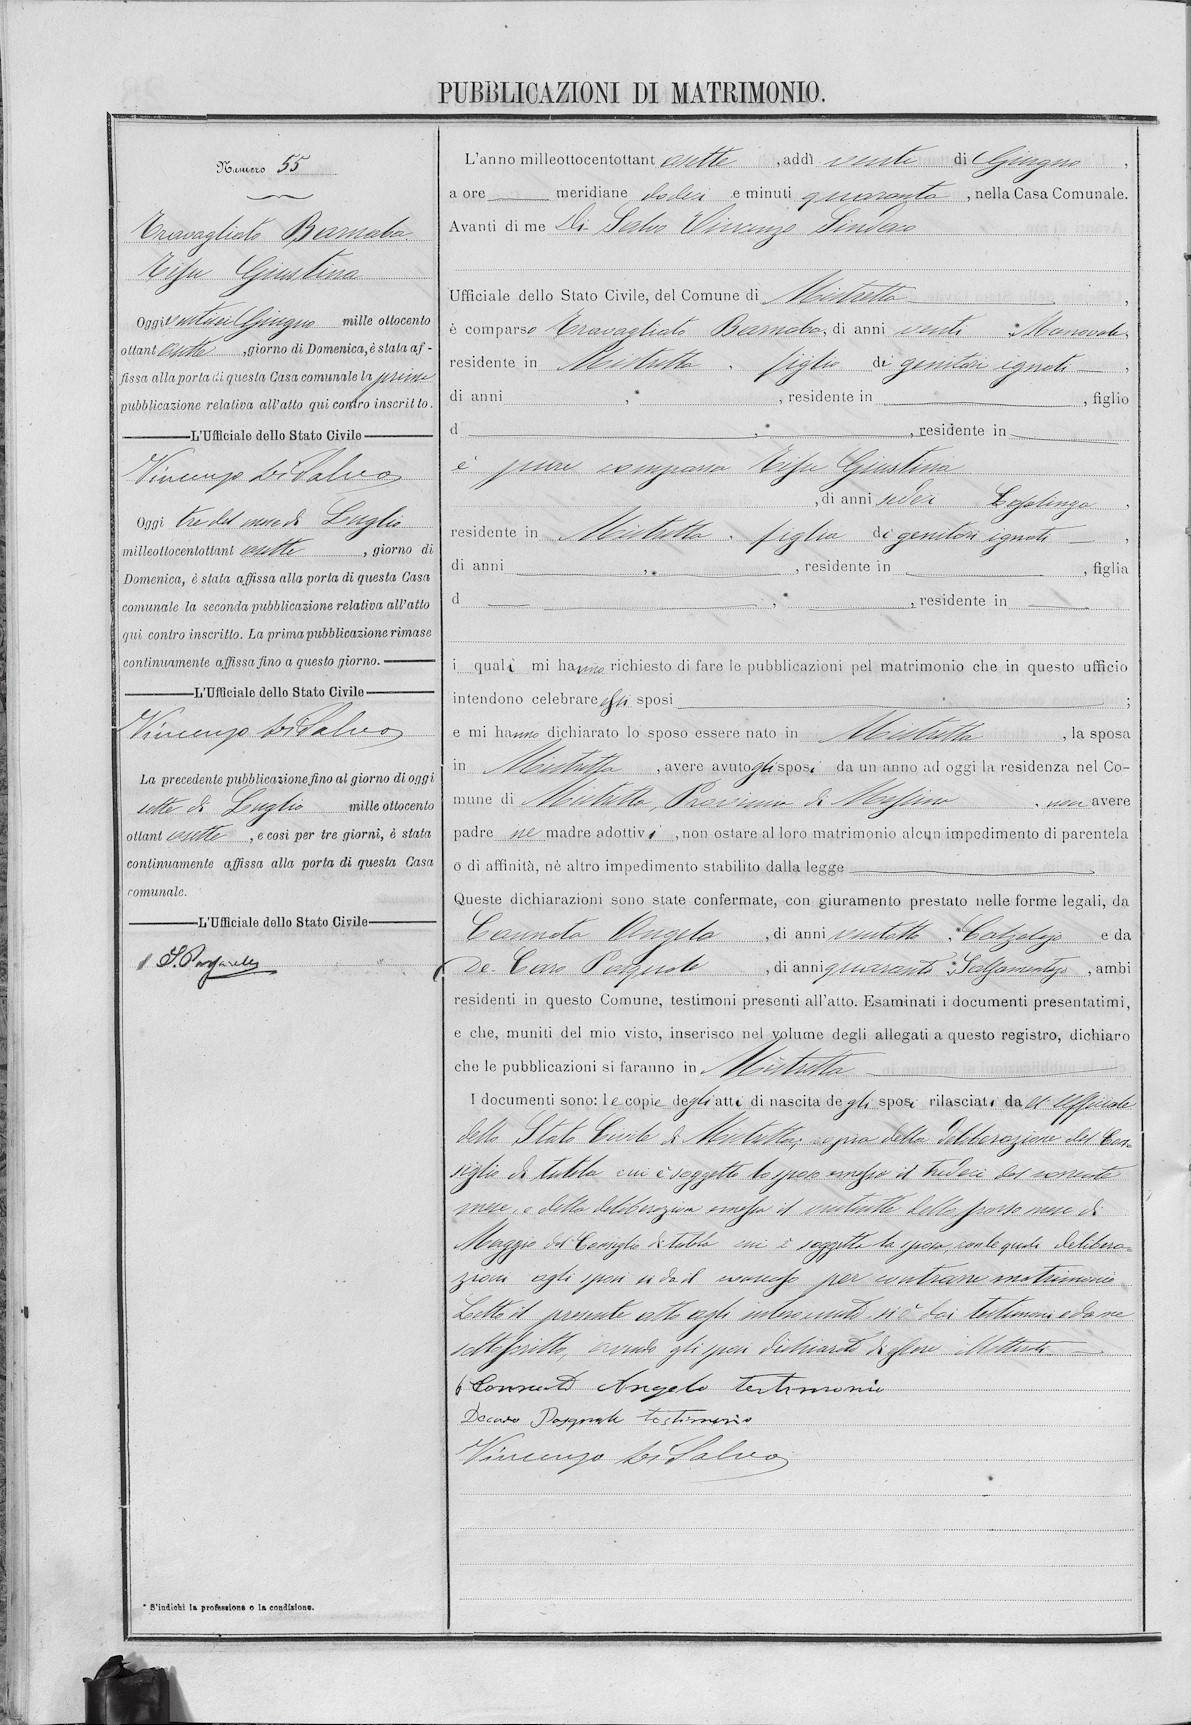 PUBBLICAZIONI DI MATRIMONIO.
Numero 55
Travagliato Barnaba
Tifu Giustina
Oggi ventisei Giugno mille ottocento
ottant sette, giorno di Domenica, è stata af-
fissa alla porta di questa Casa comunale la prima
pubblicazione relativa all'atto qui contro inscritto.
L'Ufficiale dello Stato Civile
Vincenzo Di Salvo
Oggi tre del mese di Luglio
milleottocentottant sette, giorno di
Domenica, è stata affissa alla porta di questa Casa
comunale la seconda pubblicazione relativa all'atto
qui contro inscritto. La prima pubblicazione rimase
continuamente affissa fino a questo giorno.
L'Ufficiale dello Stato Civile
Vincenzo Di Salvo
La precedente pubblicazione fino al giorno di oggi
sette di Luglio mille ottocento
ottant sette, e così per tre giorni, è stata
continuamente affissa alla porta di questa Casa
comunale.
L'Ufficiale dello Stato Civile
* S'indichi la professione o la condizione.
L'anno milleottocentottant sette, addì venti di Giugno,
a ore meridiane dodici e minuti quaranta, nella Casa Comunale.
Avanti di me Di Salvo Vincenzo Sindaco
Ufficiale dello Stato Civile, del Comune di Mistretta,
è comparso Travagliato Barnaba, di anni venti, * Manovale,
residente in Mistretta, figlio di genitori ignoti,
di anni , * , residente in , figlio
d , * , residente in
è pure comparsa Tifu Giustina
, di anni sedici Casalinga,
residente in Mistretta, figlia di genitori ignoti,
di anni , * , residente in , figlia
d , * , residente in
i quali mi hanno richiesto di fare le pubblicazioni pel matrimonio che in questo ufficio
intendono celebrare essi sposi ;
e mi hanno dichiarato lo sposo essere nato in Mistretta, la sposa
in Mistretta, avere avuto gli sposi da un anno ad oggi la residenza nel Co-
mune di Mistretta, Provincia di Messina, non avere
padre ne madre adottivi, non ostare al loro matrimonio alcun impedimento di parentela
o di affinità, nè altro impedimento stabilito dalla legge
Queste dichiarazioni sono state confermate, con giuramento prestato nelle forme legali, da
Cannata Angelo, di anni ventotto, * Calzolajo e da
De Caro Pasquale, di anni quaranta, * Salsamentajo, ambi
residenti in questo Comune, testimoni presenti all'atto. Esaminati i documenti presentatimi,
e che, muniti del mio visto, inserisco nel volume degli allegati a questo registro, dichiaro
che le pubblicazioni si faranno in Mistretta
I documenti sono: le copie degli atti di nascita degli sposi rilasciati da ll'Ufficiale
dello Stato Civile di Mistretta; copia della deliberazione del Con-
siglio di tutela cui è soggetto lo sposo emessa il tredici del corrente
mese, e della deliberazione emessa il ventisette dello scorso mese di
Maggio dal Consiglio di tutela cui è soggetta la sposa, con le quali delibera-
zioni agli sposi si dà il consenso per contrarre matrimonio.
Letto il presente atto agli intervenuti si è dai testimoni e da me
sottoscritto, avendo gli sposi dichiarato di essere illetterati
Cannata Angelo testimonio
Decaro Pasquale testimonio
Vincenzo Di Salvo